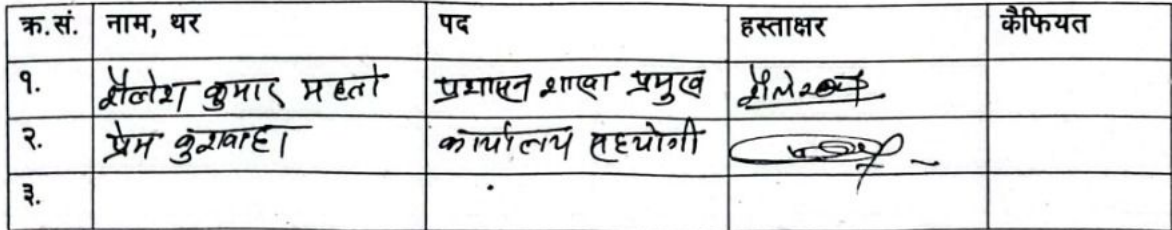 क्र.सं. नाम, थर पद हस्ताक्षर कैफियत
१. शैलेश कुमार महतो प्रशासन शाखा प्रमुख
२. प्रेम कुशवाहा कार्यालय सहयोगी
३.